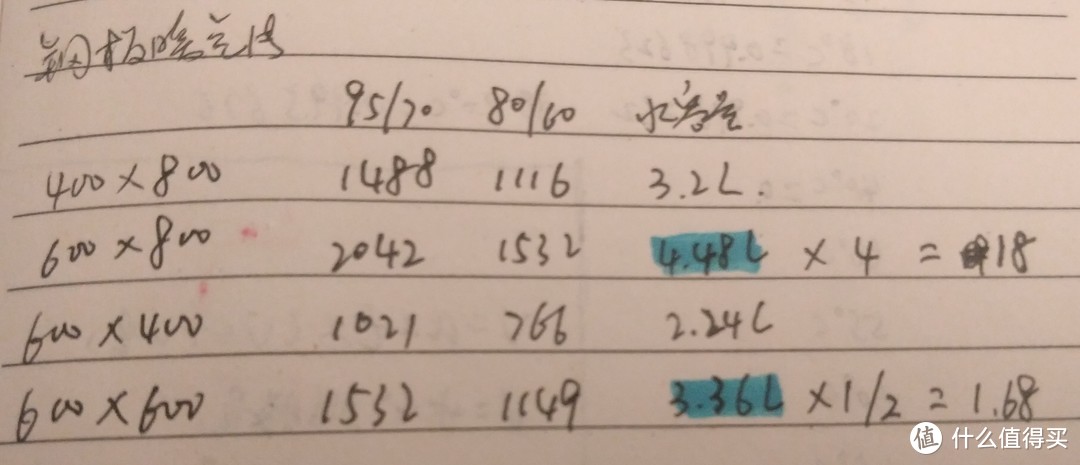 钢板暖气片
95/70 80/60 水容量
400×800 1488 1116 3.2L.
600×800 2042 1532 4.48L × 4 = 18
600×400 1021 766 2.24L
600×600 1532 1149 3.36L ×1/2 = 1.68
值 什么值得买